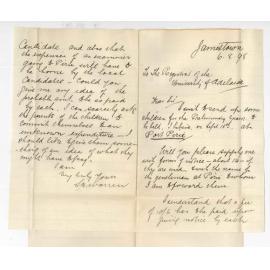 Jamestown
6.2.98
To The Registrar of the
University of Adelaide
Dear Sir
I want to send up some
children for the Preliminary Exam. to
be held, I believe, on April 1st at
Port Pirie
Will you please supply me
with forms of notice - about 12 - if
they are used and the name
the gentleman at Pirie to whom
I am to forward them
I understand that a fee
of has to be paid upon
giving notice by each
Candidate and also that
the expenses of an examiner
going to Pirie will have to
be borne by the local
Candidates - Could you
give me any idea of the
probable amt. to be paid
by each. I can scarcely ask
the parents of the children to
commit themselves to an
unknown expenditure - I
should like to give them some-
thing of an idea of what they
might have to pay.
I am
Very truly yours
Warren